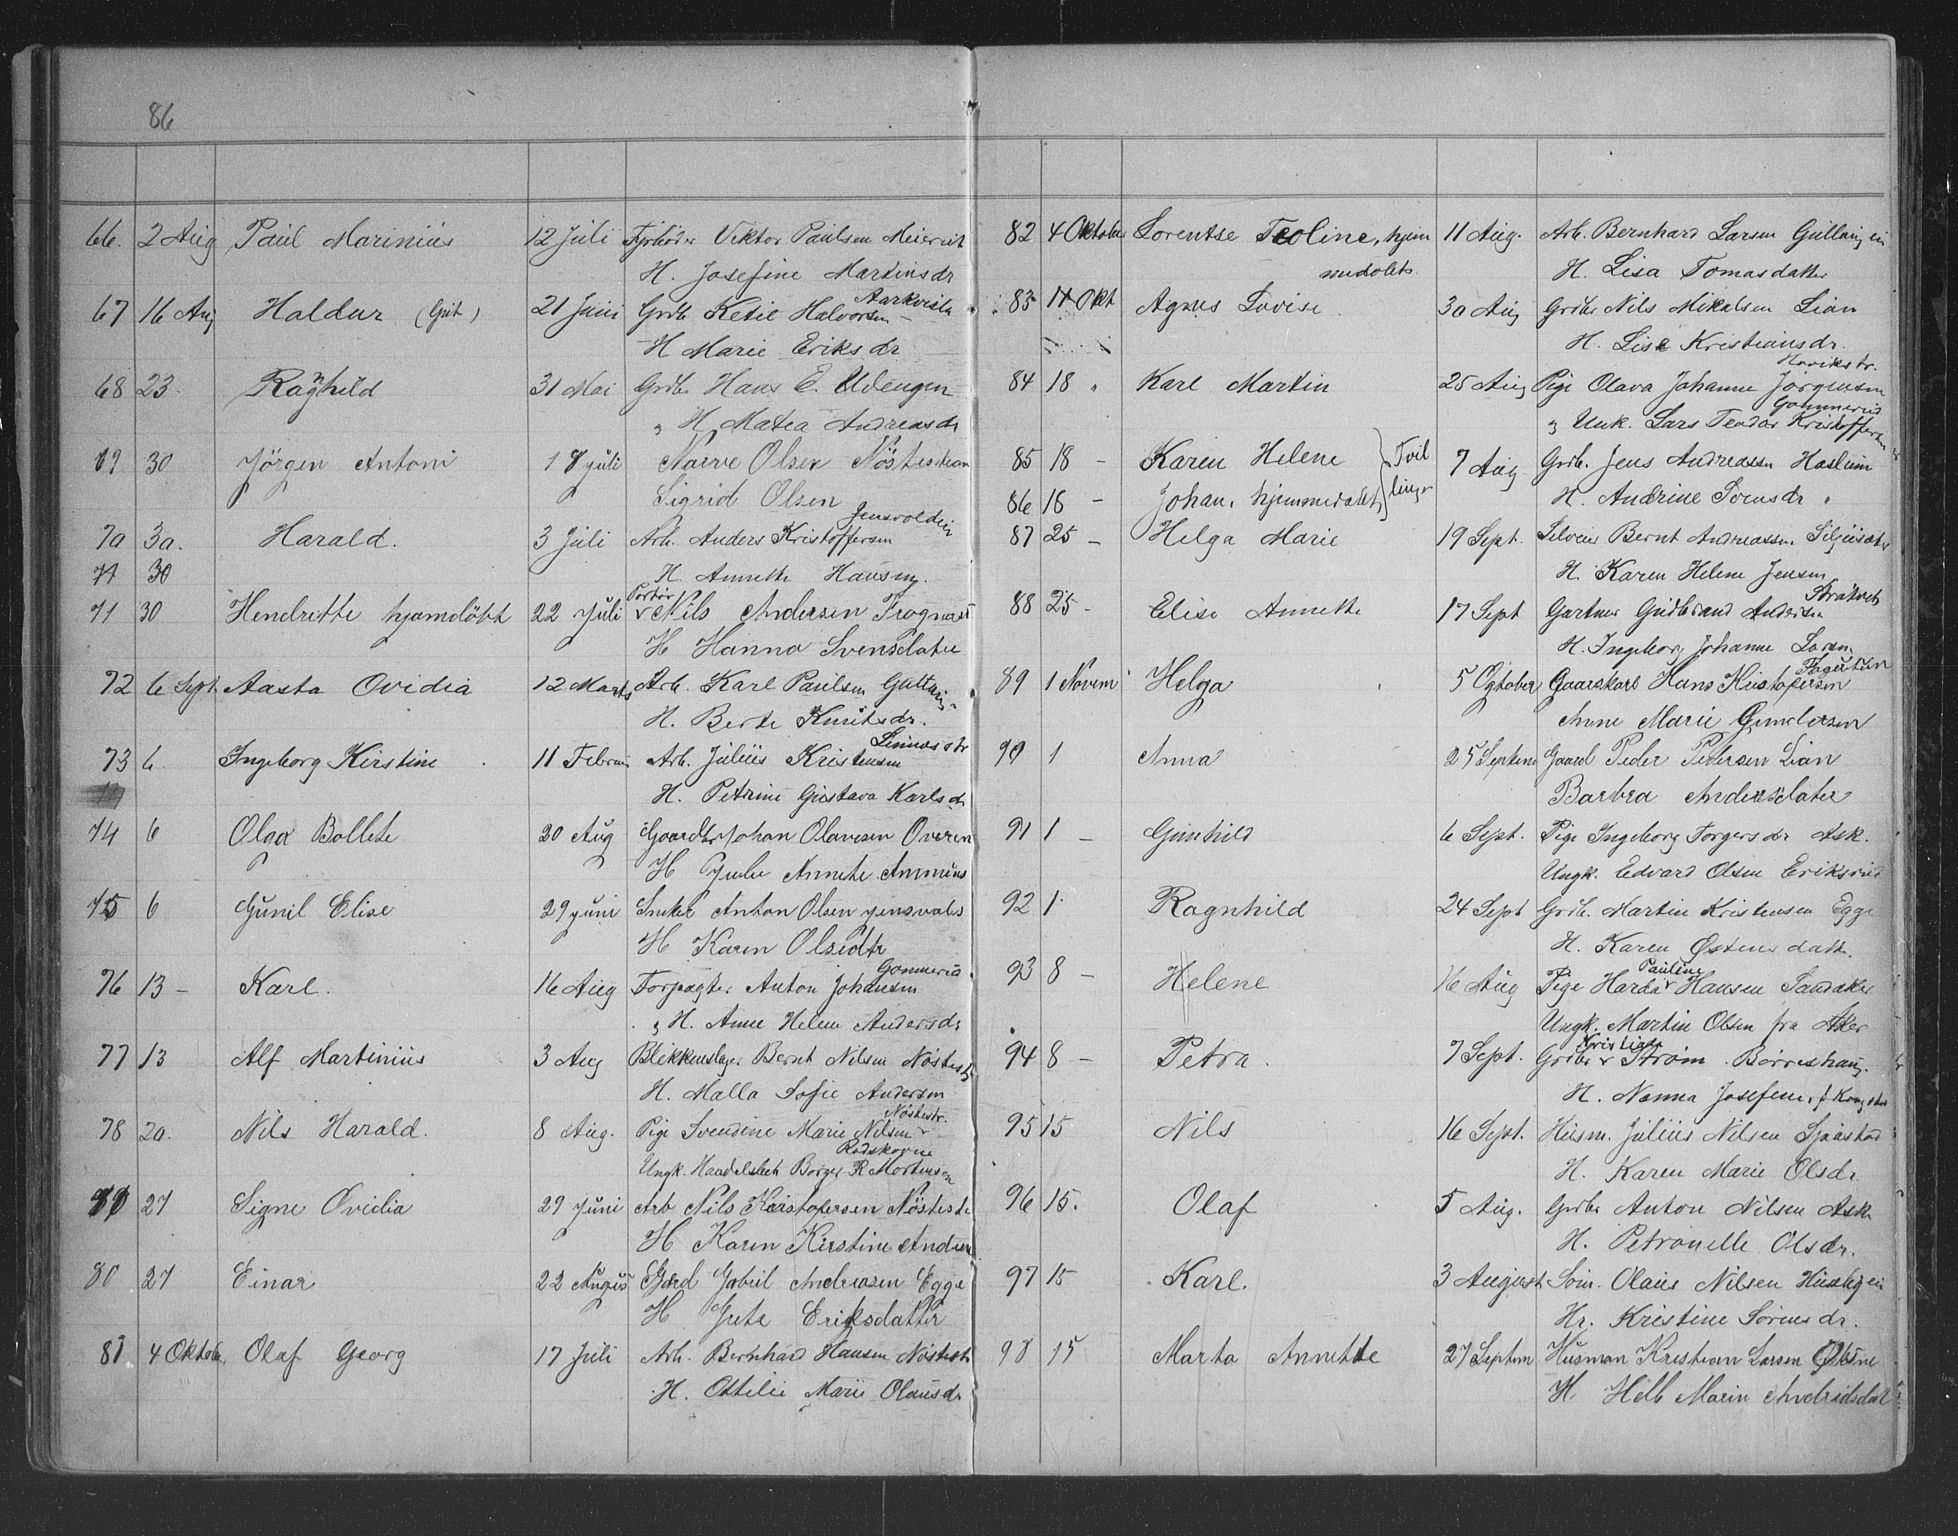 86
66. 2 Aug Paul Marinius 12 Juli Fyrbøder Viktor Paulsen Meieriet
H. Josefine Martinsdr
67 16 Aug Haldur (Gut) 21 Juni Grdb Ketil Halvorsen Aarkvisla
H Marie Eriksdr
68 23. Ragnhild 31 Mai Grdb. Hans E. Udengen
" H. Matea Andreasdr
69 30 Jörgen Antoni 18 juli Narve Olsen Nöstestran
Sigrid Olsen
70 30. Harald. 3 Juli Arb. Anders Kristoffersen Jensvoldein
71 30 H. Annethe Hansen.
71 30 Hendrette hjemdöbt 22 Juli Portör Nils Andersen Trognæs
H Hanna Svensdater
72 6 Sept. Aasta Ovidia 12 Marts Arb. Karl Paulsen Gulting
H. Berte Knutsdr.
73 6 Ingeborg Kirstine 11 Februa Arb. Julius Kristensen Linnesstr
H. Petrine Gustava Karlsdr
74 6 Olga Bollete 20 Aug Gaardbr Johan Olavesen Overen
H Julie Annete Ammuns
75 6 Gunil Elise 29 juni Sneker Anton Olsen jensvold
H Karen Olsedtr
76 13 - Karl. 16 Aug Forpagter Anton Johansen Gommerud
" H. Anne Helene Andersdr
77 13 Alf Martinius 3 Aug Blikkenslager Bernt Nilsen Nöstestr
H. Malla Sofie Andersen
78 20. Nils Harald. 8 Aug. Pige Svendine Marie Nilsen Nöstestr.
Ungk. Handelsbetj Borger R Mortensen
79 27 Signe Ovidia 29 Juni Arb Nils Kristofersen Nöstestr
H Karen Kirstine Andrea
80 27 Einar 22 August Gjard Jabiel Andreasen Egge
H Grete Eriksdatter
81 4 Oktob. Olaf Georg 17 Juli Arb. Bernhard Hansen Nöstestr
H. Ottelie Marie Olausdr
82 4 Oktober Lorentse Teoline, hjem 11 Aug. Arb. Bernhard Larsen Gullaug ein
medøbt. H. Lisa Tomasdatter
83 11 Okt Agnes Lovise 30 Aug Grdbr Nils Mikalsen Lian
H. Lise Kristiansdr.
84 18 " Karl Martin 25 Aug Pige Olava Johanne Jørgensen Havikstr.
" Unk. Lars Teodor Kristoffersen Gommerud
85 18 - Karen Helene } Tvil 7 Aug Grdb. Jens Andreassen Haslum
86 18 - Johan, hjemmedøbt } linger H. Andrine Svensdr.
87 25 - Helga Marie 19 Sept. Selveier Bernt Andreassen. Siljusæter
H. Karen Helene Jensen
88 25 - Elise Annette 17 Sept Gartner Gudbrand Andersen
H. Ingeborg Johanne Laran
89 1 Novem Helga 5 Ogtober Gaarskarl Hans Kristofersen Fagertun
Anne Marie Gundersen
90 1 Anna 25 Septem Gaard Peder Pedersen Lian
Barbra Andersdater
91 1 - Gunhild 6 Sept. Pige Ingeborg Torgersdr Ask.
Ungk. Edvard Olsen Eriksrud
92 1. Ragnhild 24 Sept Grdb. Martin Kristensen Egge
H. Karen Østensdatt.
93 8 - Helene 16 Aug Pige Harda Pauline Hansen Sandaker
Ungk. Martin Olsen fra Aker
94 8 - Petra. 7 Sept. Grdbr Kristian Strøm. Børreshaug.
H. Nanna Josefine, f Krogstad
95 15 Nils 16 Sept. Husm. Julius Nilsen Sjaastad
H. Karen Marie Olsdr.
96 15. Olaf 5 Aug. Grdbr Anton Nilsen Ask
H. Petronelle Olsdr.
97 15 Karl. 3 August Søm. Olaus Nilsen
Hr. Kristine Sörensdr.
98 15 Marta Annette 27 Septem Husman Kristian Larsen
H Marin